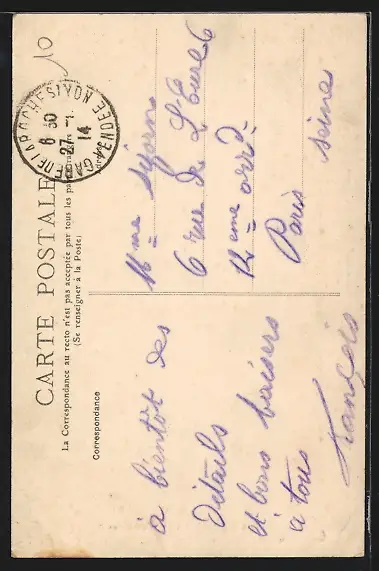 CARTE POSTALE
La Correspondance au recto n'est pas acceptée par tous les pays étrangers
(Se renseigner à la Poste)
Correspondance
10
GARE DE LA ROCHE S/ YON VENDEE
6 30
27
14
à bientôt des
Détails
et bons baisers
à tous
François
Mme
6 rue de L'Eure 6
14eme arrd-
Paris Seine